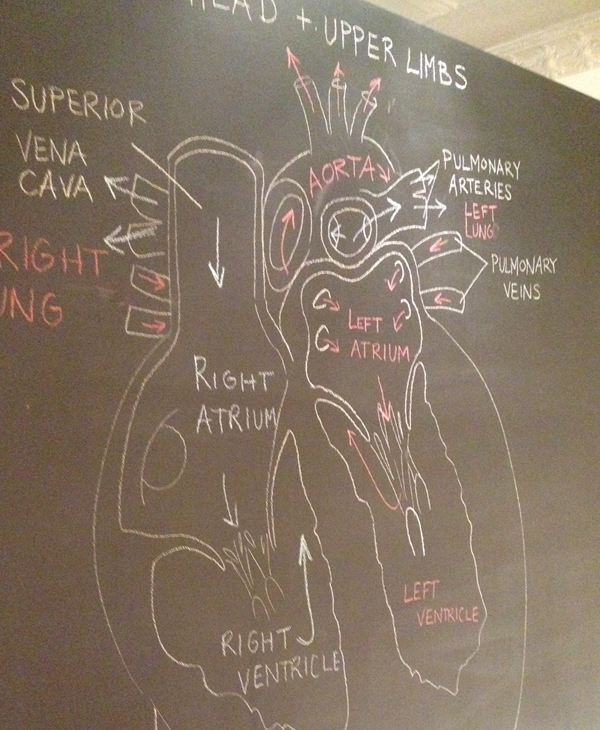 HEAD + UPPER LIMBS
SUPERIOR
VENA
CAVA
RIGHT
UNG
AORTA
PULMONARY
ARTERIES
LEFT
LUNG
PULMONARY
VEINS
LEFT
ATRIUM
RIGHT
ATRIUM
LEFT
VENTRICLE
RIGHT
VENTRICLE